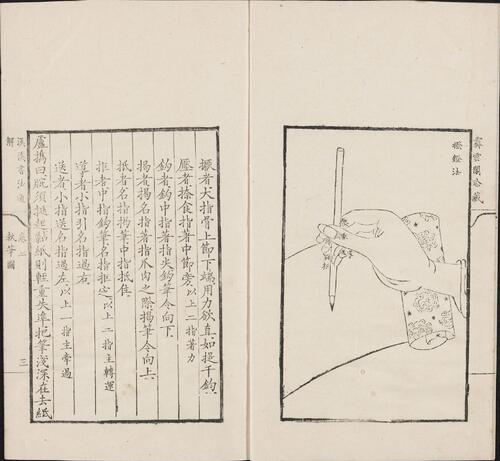 撥鐙法
擫者大指骨上節下端用力欲直如提千鈞
壓者捺食指著中節旁以上二指著力
鈎者鈎中指著指尖鈎筆令向下
揭者揭名指著指爪肉之際揭筆令向上
抵者名指揭筆中指抵住
拒者中指鈎筆名指拒定以上二指主轉運
導者小指引名指過右
送者小指送名指過左以上一指主牽過
盧攜曰腕須挺起黏紙則輕重失準把筆淺深在去紙
漢溪書法通解 卷二 執筆圖 三